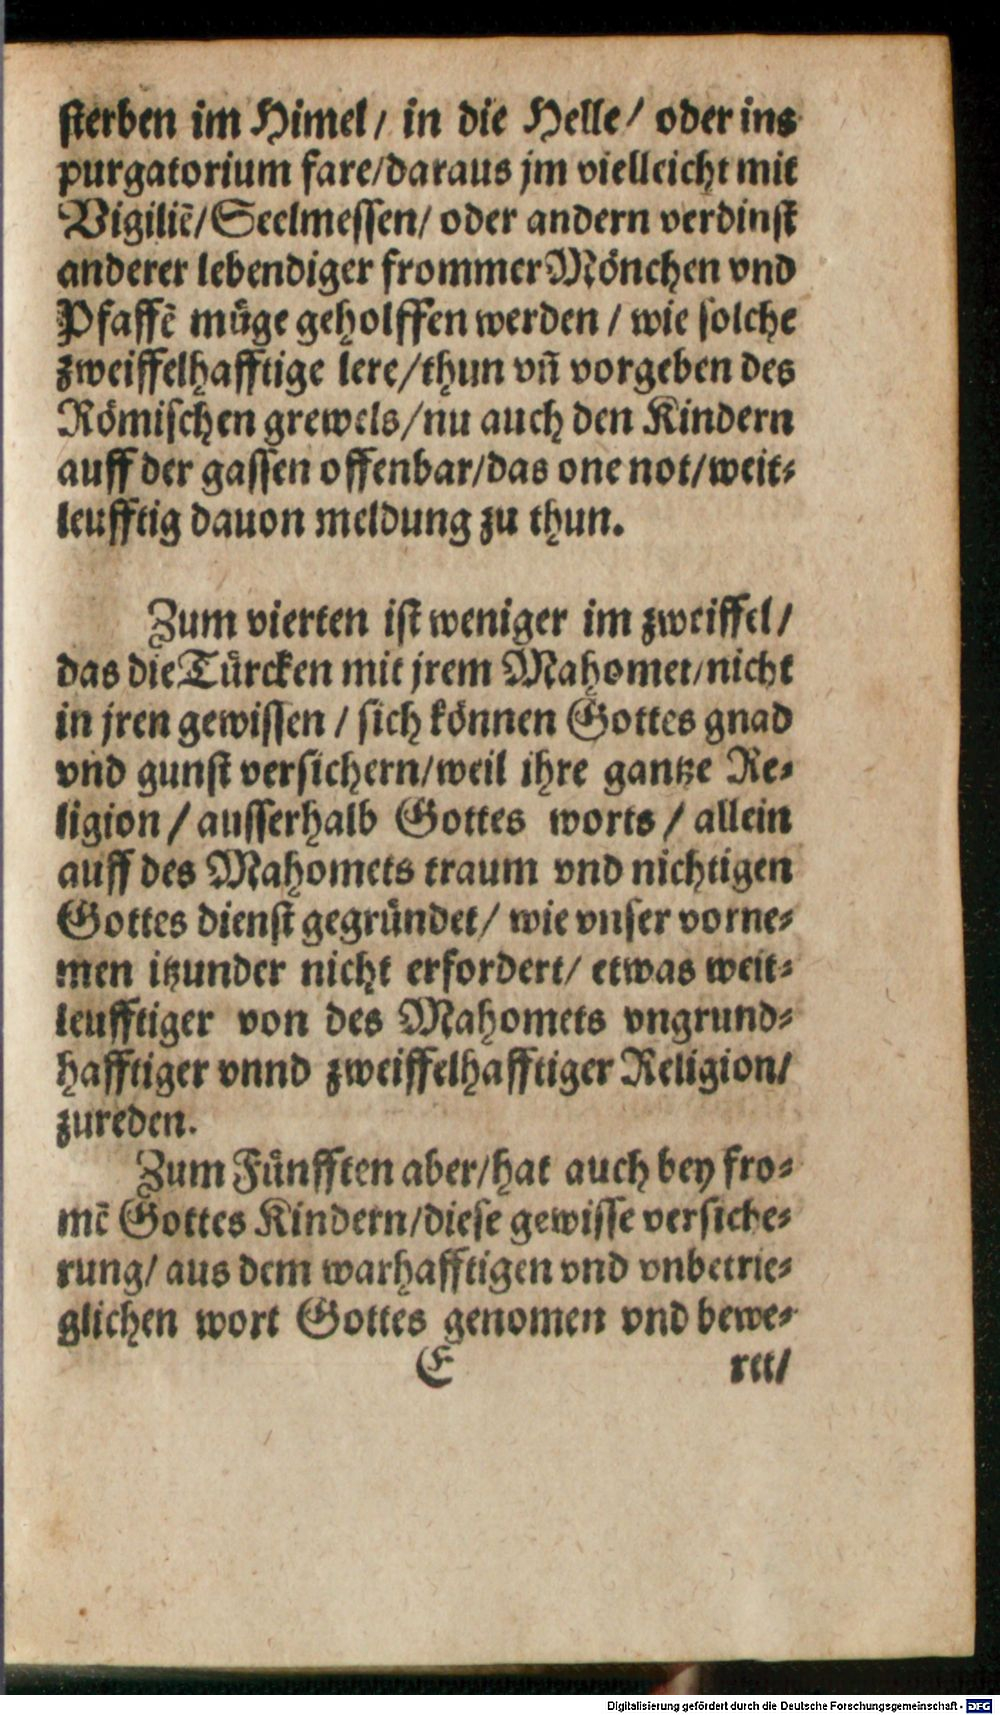 sterben im Himel/ in die Helle/ oder ins
purgatorium fare/daraus jm vielleicht mit
Vigiliē/Seelmessen/ oder andern verdinst
anderer lebendiger frommer Mönchen vnd
Pfaffē müge geholffen werden / wie solche
zweiffelhafftige lere/thun vñ vorgeben des
Römischen grewels/nu auch den Kindern
auff der gassen offenbar/das one not/weit⸗
leufftig dauon meldung zu thun.
Zum vierten ist weniger im zweiffel/
das die Türcken mit jrem Mahomet/nicht
in jren gewissen / sich können Gottes gnad
vnd gunst versichern/weil ihre gantze Re⸗
ligion / ausserhalb Gottes worts / allein
auff des Mahomets traum vnd nichtigen
Gottes dienst gegründet/ wie vnser vorne⸗
men itzunder nicht erfordert/ etwas weit⸗
leufftiger von des Mahomets vngrund⸗
hafftiger vnnd zweiffelhafftiger Religion/
zureden.
Zum Fünfften aber/hat auch bey fro⸗
mē Gottes Kindern/diese gewisse versiche⸗
rung/ aus dem warhafftigen vnd vnbetrie⸗
glichen wort Gottes genomen vnd bewe⸗
E ret/
Digitalisierung gefördert durch die Deutsche Forschungsgemeinschaft - DFG